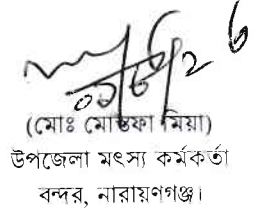 (মোঃ মোস্তফা মিয়া)
উপজেলা মৎস্য কর্মকর্তা
বন্দর, নারায়ণগঞ্জ।